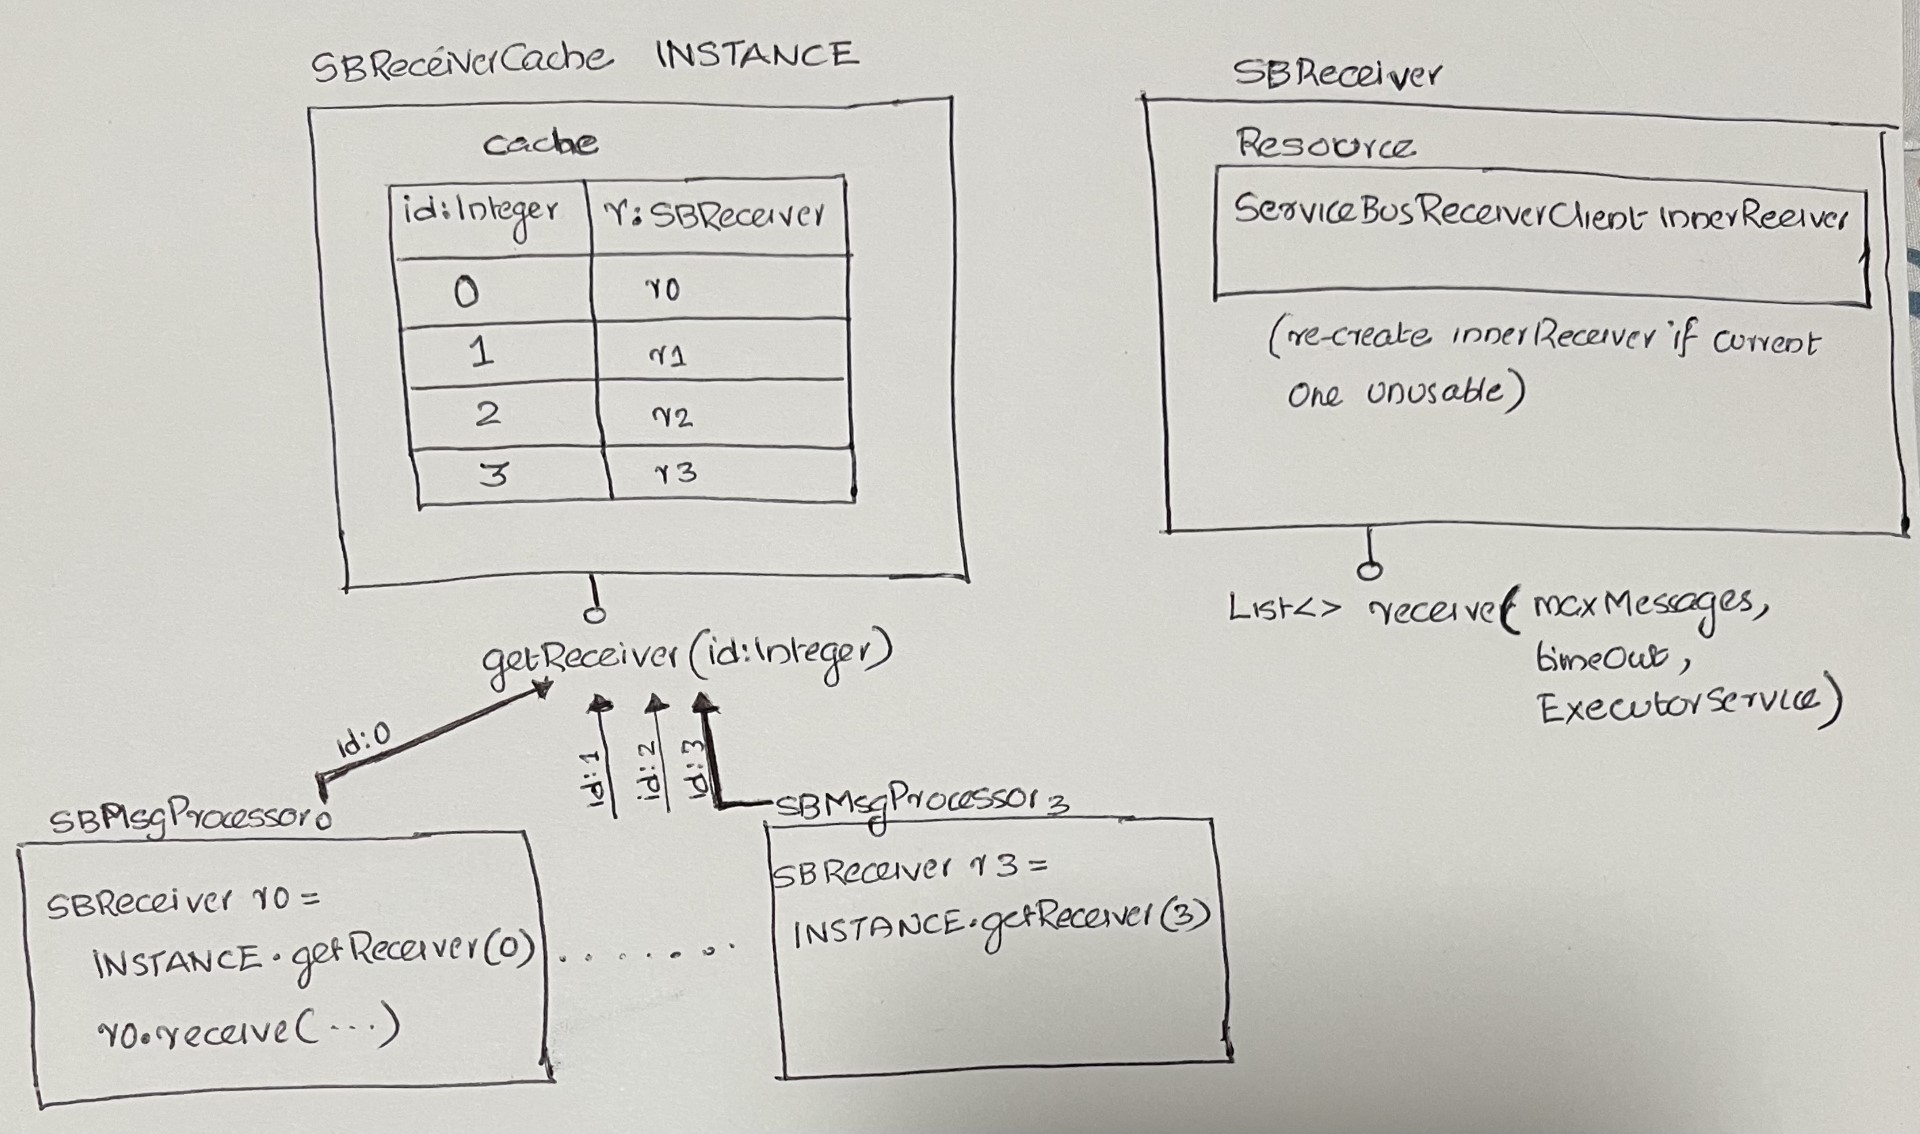 SBReceiverCache INSTANCE
cache
id:Integer r:SBReceiver
0 r0
1 r1
2 r2
3 r3
getReceiver(id:Integer)
id:0
id:1
id:2
id:3
SBMsgProcessor0
SBReceiver r0 =
INSTANCE.getReceiver(0)
r0.receive(...)
.......
SBMsgProcessor3
SBReceiver r3 =
INSTANCE.getReceiver(3)
SBReceiver
Resource
ServiceBusReceiverClient innerReeiver
(re-create innerReceiver if current
one unusable)
List<> receive( maxMessages,
timeOut,
ExecutorService)